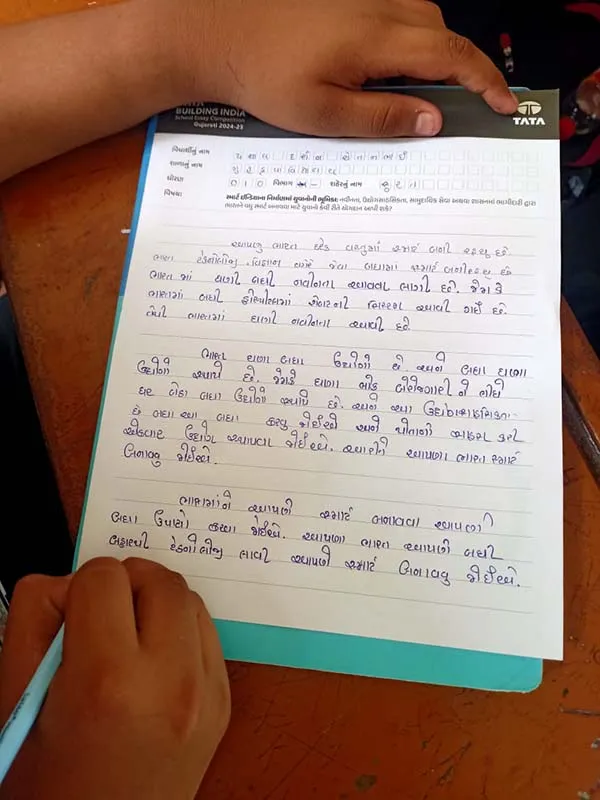 TATA
BUILDING INDIA
School Essay Competition
Gujarati 2024-25
TATA
વિદ્યાર્થીનું નામ
શાળાનું નામ
ધોરણ 010 વિભાગ - શહેરનું નામ સુરત
વિષય: સ્માર્ટ ઇન્ડિયાના નિર્માણમાં યુવાનોની ભૂમિકા: નવીનતા, ઉદ્યોગસાહસિકતા, સામુદાયિક સેવા અથવા શાસનમાં ભાગીદારી દ્વારા
ભારતને વધુ સ્માર્ટ બનાવવા માટે યુવાનો કેવી રીતે યોગદાન આપી શકે?
આપણુ ભારત દરેક વસ્તુમાં સ્માર્ટ બની રહ્યુ છે
ભારત ટેકનોલોજી, વિજ્ઞાન વગેરે જેવા બધામાં સ્માર્ટ બની રહ્યુ છે
ભારત માં ઘણી બધી નવીનતા આવવા લાગી છે. જેમ કે
ભારતમાં બધી હોસ્પિટલમાં આવી ગઈ છે.
તેથી ભારતમાં ઘણી નવીનતા આવી છે
ભારત ઘણા બધા ઉદ્યોગો છે. અને બધા ઘણા
ઉદ્યોગો આપે છે. જેમકે ઘણા લોકો બેરોજગારી ને લીધે
ઘરે બેઠા બધા ઉદ્યોગો આપે છે. અને આ
છે બધા આ બધા કરવુ જોઈએ અને પોતાનો કરી
એકવાર ઉદ્યોગ આપવા જોઈએ. આપણા ભારત સ્માર્ટ
બનાવવુ જોઈએ.
આપણી સ્માર્ટ બનાવવા આપણી
બધા ઉપાયો કરવા જોઈએ. આપણા ભારત આપણી બધી
બહારથી ટેકનોલોજી લાવી આપણી સ્માર્ટ બનાવવુ જોઈએ.